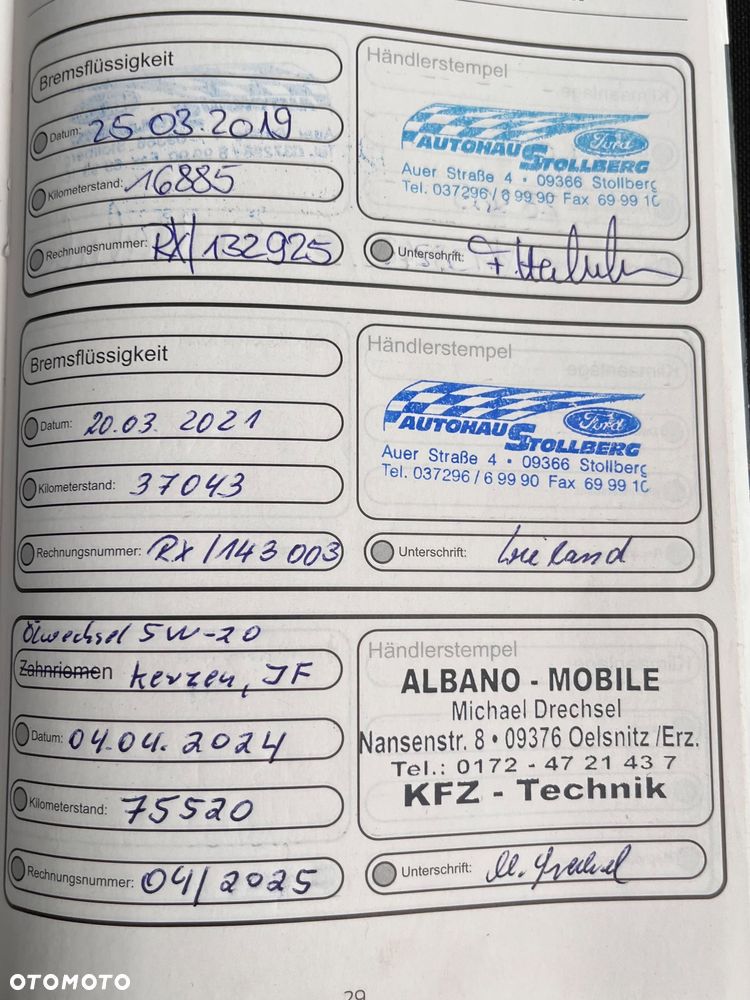 Bremsflüssigkeit
Datum: 25.03.2019
Kilometerstand: 16885
Rechnungsnummer: RX/132925
Händlerstempel
AUTOHAUS STOLLBERG Ford
Auer Straße 4 • 09366 Stollberg
Tel. 037296/6 99 90 Fax 69 99 10
Unterschrift:
Bremsflüssigkeit
Datum: 20.03. 2021
Kilometerstand: 37043
Rechnungsnummer: RX/143003
Händlerstempel
AUTOHAUS STOLLBERG Ford
Auer Straße 4 • 09366 Stollberg
Tel. 037296/6 99 90 Fax 69 99 10
Unterschrift: Wieland
Ölwechsel 5W-20
Zahnriemen Kerzen, IF
Datum: 04.04.2024
Kilometerstand: 75520
Rechnungsnummer: 04/2025
Händlerstempel
ALBANO - MOBILE
Michael Drechsel
Nansenstr. 8 • 09376 Oelsnitz /Erz.
Tel.: 0172 - 47 21 43 7
KFZ - Technik
Unterschrift: M. Drechsel
29
OTOMOTO